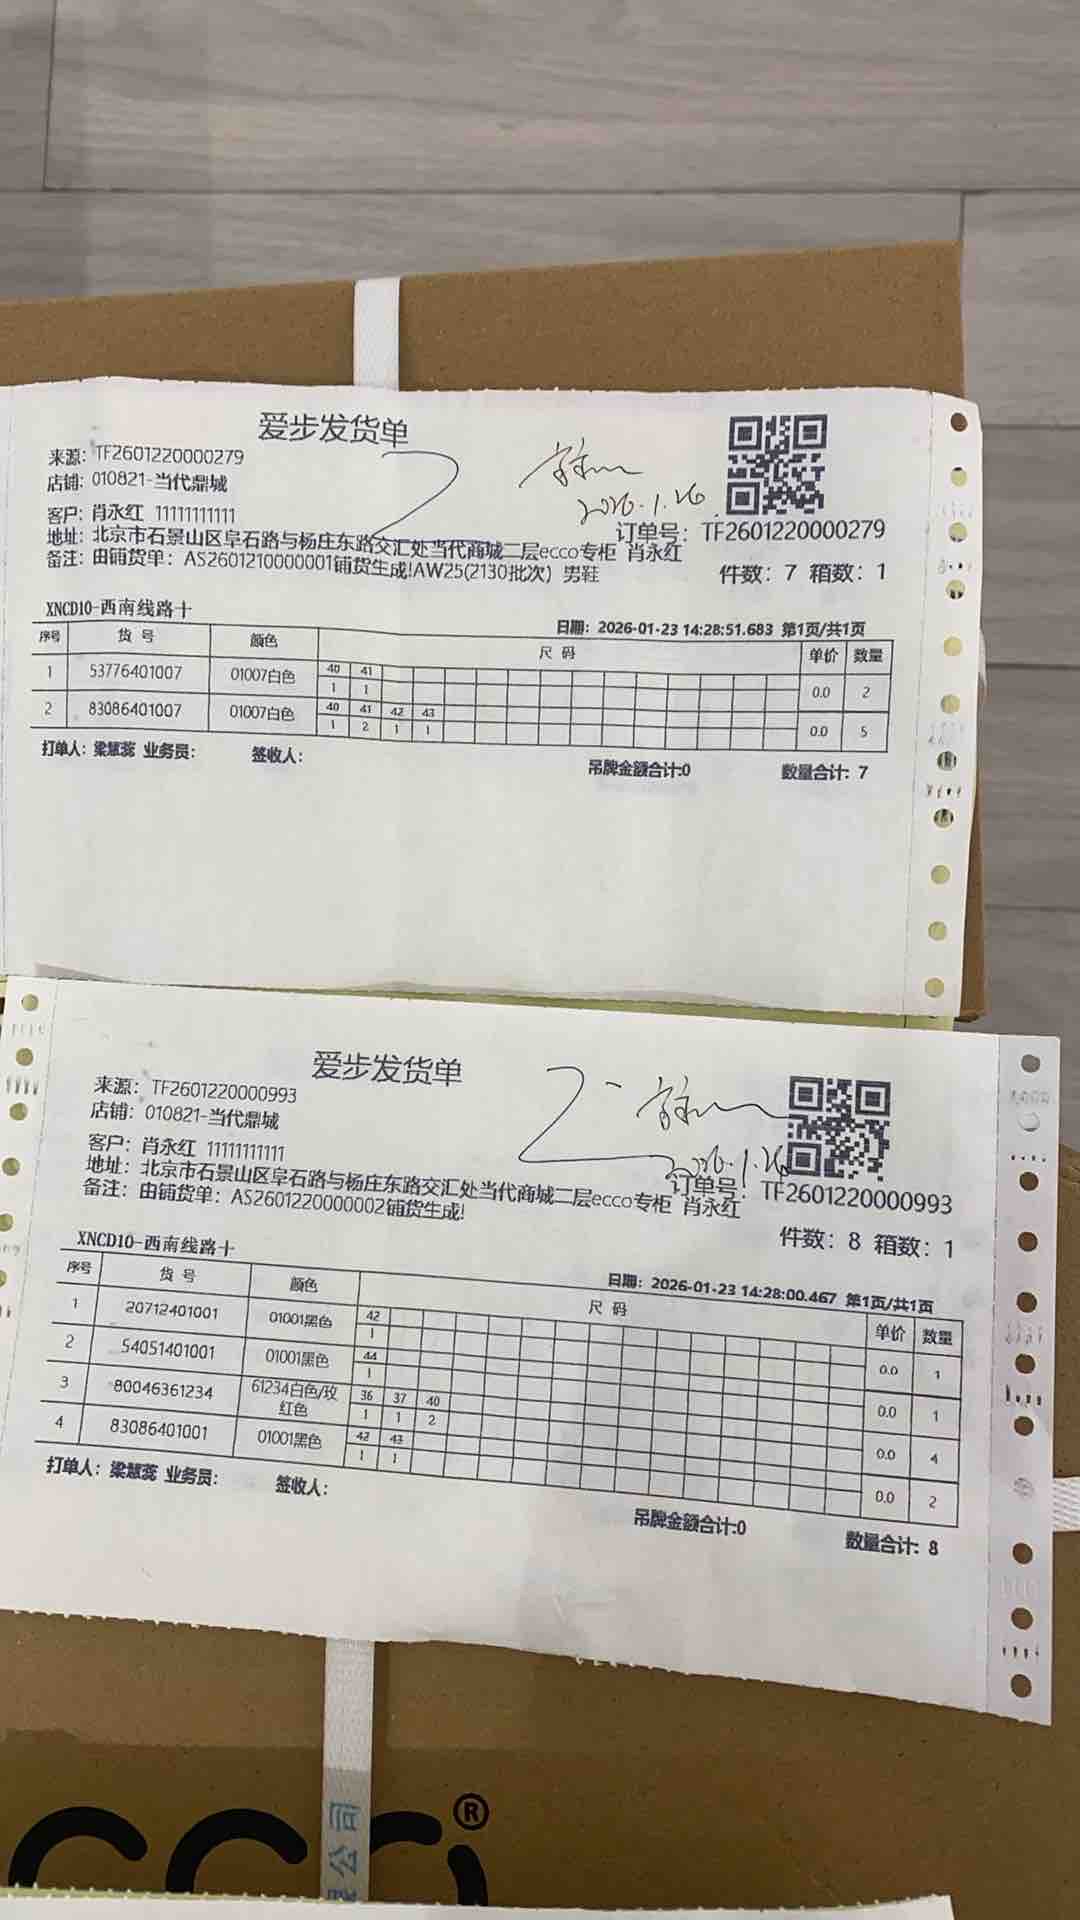 爱步发货单
来源: TF2601220000279
店铺: 010821-当代鼎城
2026.1.26
客户: 肖永红 11111111111
订单号: TF2601220000279
地址: 北京市石景山区阜石路与杨庄东路交汇处当代商城二层ecco专柜 肖永红
备注: 由铺货单: AS2601210000001铺货生成!AW25(2130批次) 男鞋
件数: 7 箱数: 1
XNCD10-西南线路十
日期: 2026-01-23 14:28:51.683 第1页/共1页
序号 货 号 颜色 尺 码 单价 数量
40 41
1 53776401007 01007白色 0.0 2
1 1
40 41 42 43
2 83086401007 01007白色 0.0 5
1 2 1 1
打单人: 梁慧蕊 业务员: 签收人:
吊牌金额合计:0 数量合计: 7
爱步发货单
来源: TF2601220000993
店铺: 010821-当代鼎城
2026.1.26
客户: 肖永红 11111111111
订单号: TF2601220000993
地址: 北京市石景山区阜石路与杨庄东路交汇处当代商城二层ecco专柜 肖永红
备注: 由铺货单: AS2601220000002铺货生成!
件数: 8 箱数: 1
XNCD10-西南线路十
日期: 2026-01-23 14:28:00.467 第1页/共1页
序号 货 号 颜色 尺 码 单价 数量
42
1 20712401001 01001黑色 0.0 1
1
44
2 54051401001 01001黑色 0.0 1
1
36 37 40
3 80046361234 61234白色/玫红色 0.0 4
1 1 2
42 43
4 83086401001 01001黑色 0.0 2
1 1
打单人: 梁慧蕊 业务员: 签收人:
吊牌金额合计:0 数量合计: 8
ecco®
公司